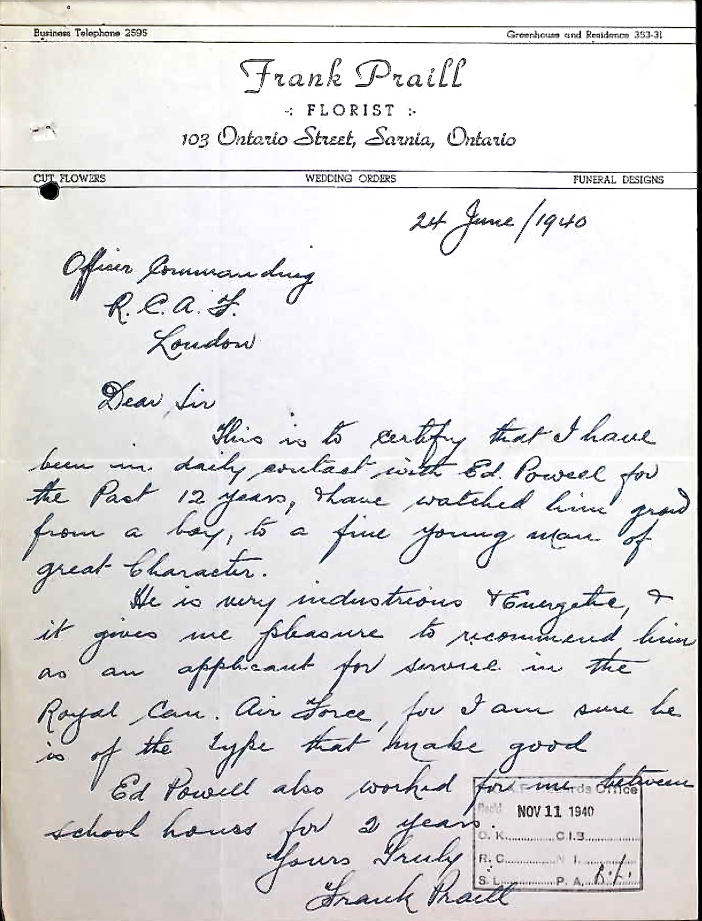 Business Telephone 2595
Greenhouse and Residence 353-31
Frank Praill
-: FLORIST :-
103 Ontario Street, Sarnia, Ontario
CUT FLOWERS WEDDING ORDERS FUNERAL DESIGNS
24 June/1940
Officer Commanding
R.C.A.F.
London
Dear Sir
This is to certify that I have
been in daily contact with Ed. Powell for
the Past 12 years, & have watched him grow
from a boy, to a fine young man of
great Character.
He is very industrious & Energetic, &
it gives me pleasure to recommend him
as an applicant for service in the
Royal Can. Air Force, for I am sure he
is of the type that make good
Ed Powell also worked for me between
school hours for 2 years.
Yours Truly
Frank Praill
Records Office
Rec'd NOV 11 1940
O.K. C.I.B.
R.C.
S.L. P.A.